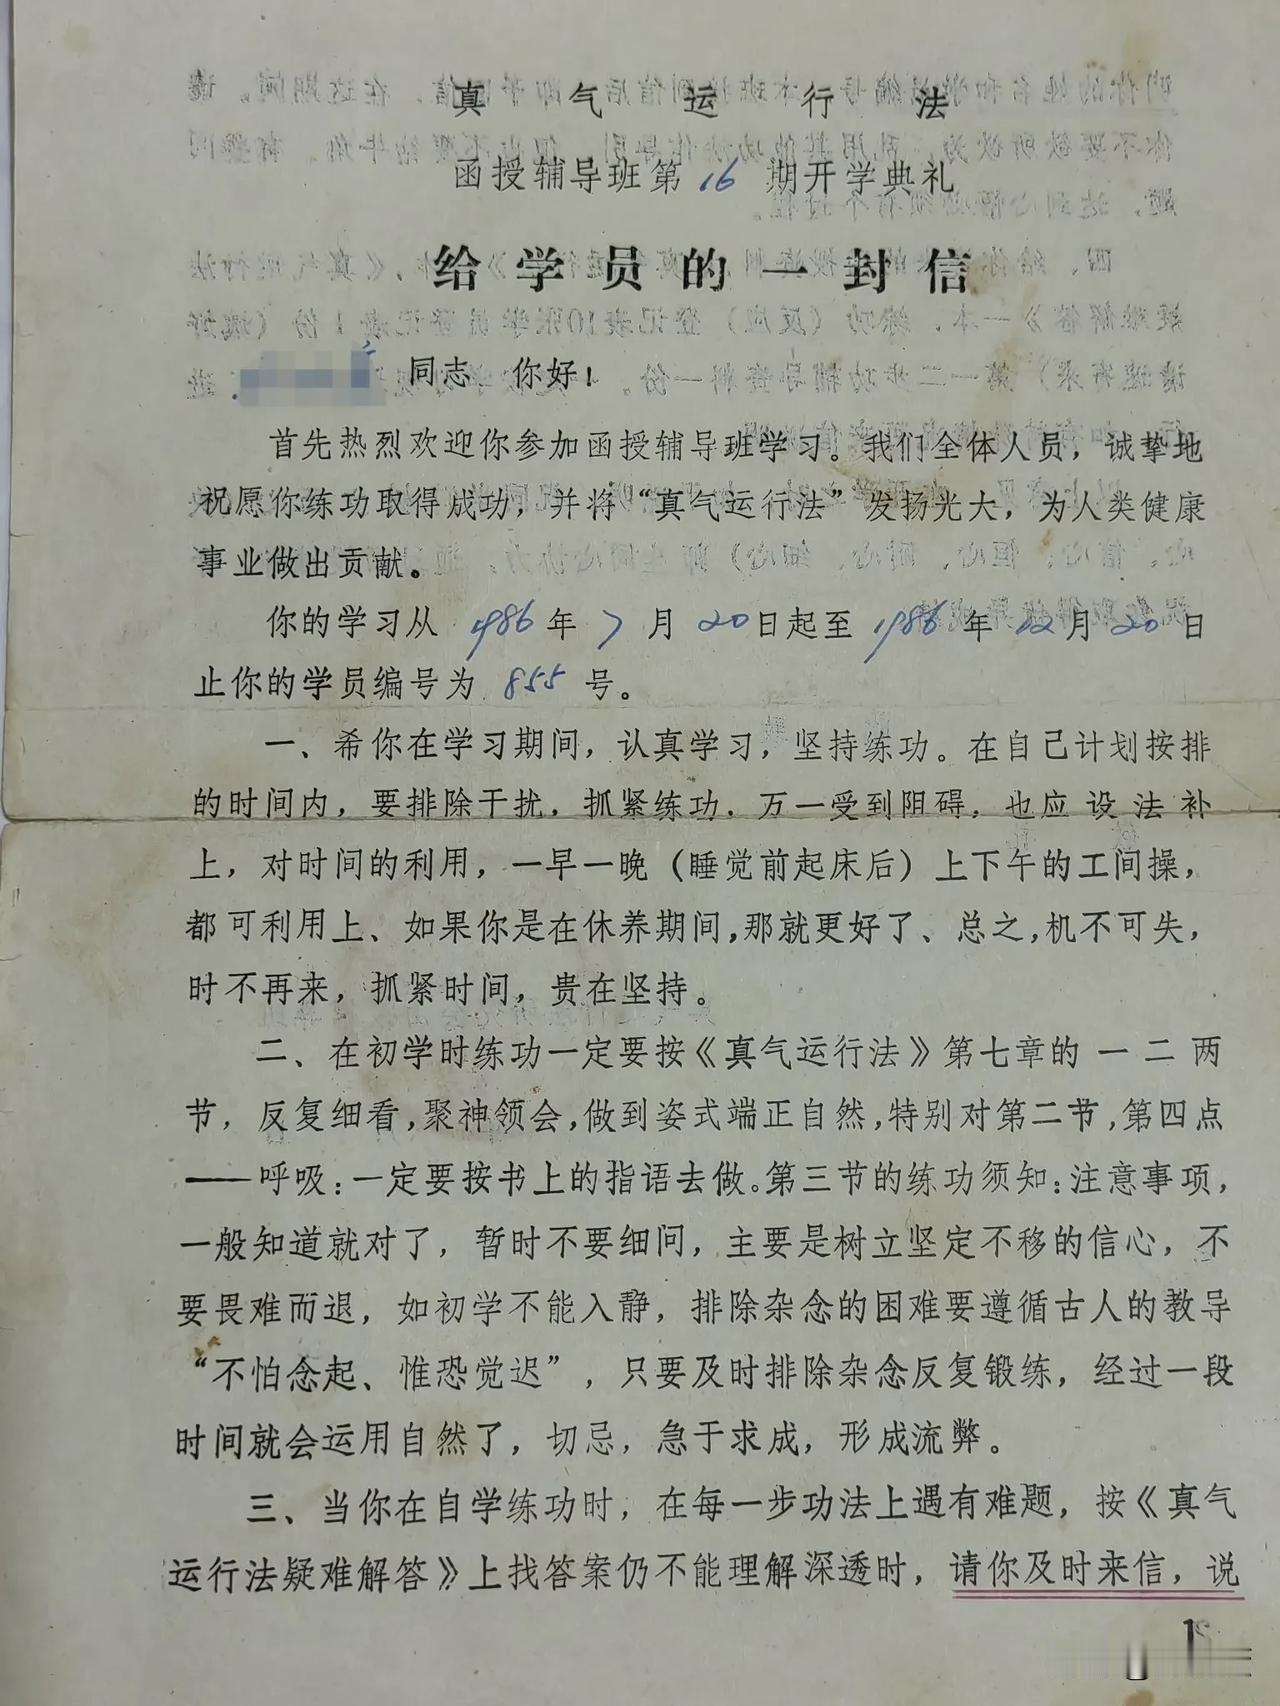 真气运行法
函授辅导班第16期开学典礼
给学员的一封信
同志 你好！
首先热烈欢迎你参加函授辅导班学习。我们全体人员，诚挚地
祝愿你练功取得成功，并将“真气运行法”发扬光大，为人类健康
事业做出贡献。
你的学习从1986年7月20日起至1986年12月20日
止你的学员编号为855号。
一、希你在学习期间，认真学习，坚持练功。在自己计划按排
的时间内，要排除干扰，抓紧练功．万一受到阻碍，也应设法补
上，对时间的利用，一早一晚（睡觉前起床后）上下午的工间操，
都可利用上、如果你是在休养期间，那就更好了、总之，机不可失，
时不再来，抓紧时间，贵在坚持。
二、在初学时练功一定要按《真气运行法》第七章的一二两
节，反复细看，聚神领会，做到姿式端正自然，特别对第二节，第四点
——呼吸：一定要按书上的指语去做。第三节的练功须知：注意事项，
一般知道就对了，暂时不要细问，主要是树立坚定不移的信心，不
要畏难而退，如初学不能入静，排除杂念的困难要遵循古人的教导
“不怕念起、惟恐觉迟”，只要及时排除杂念反复锻练，经过一段
时间就会运用自然了，切忌，急于求成，形成流弊。
三、当你在自学练功时，在每一步功法上遇有难题，按《真气
运行法疑难解答》上找答案仍不能理解深透时，请你及时来信，说
1